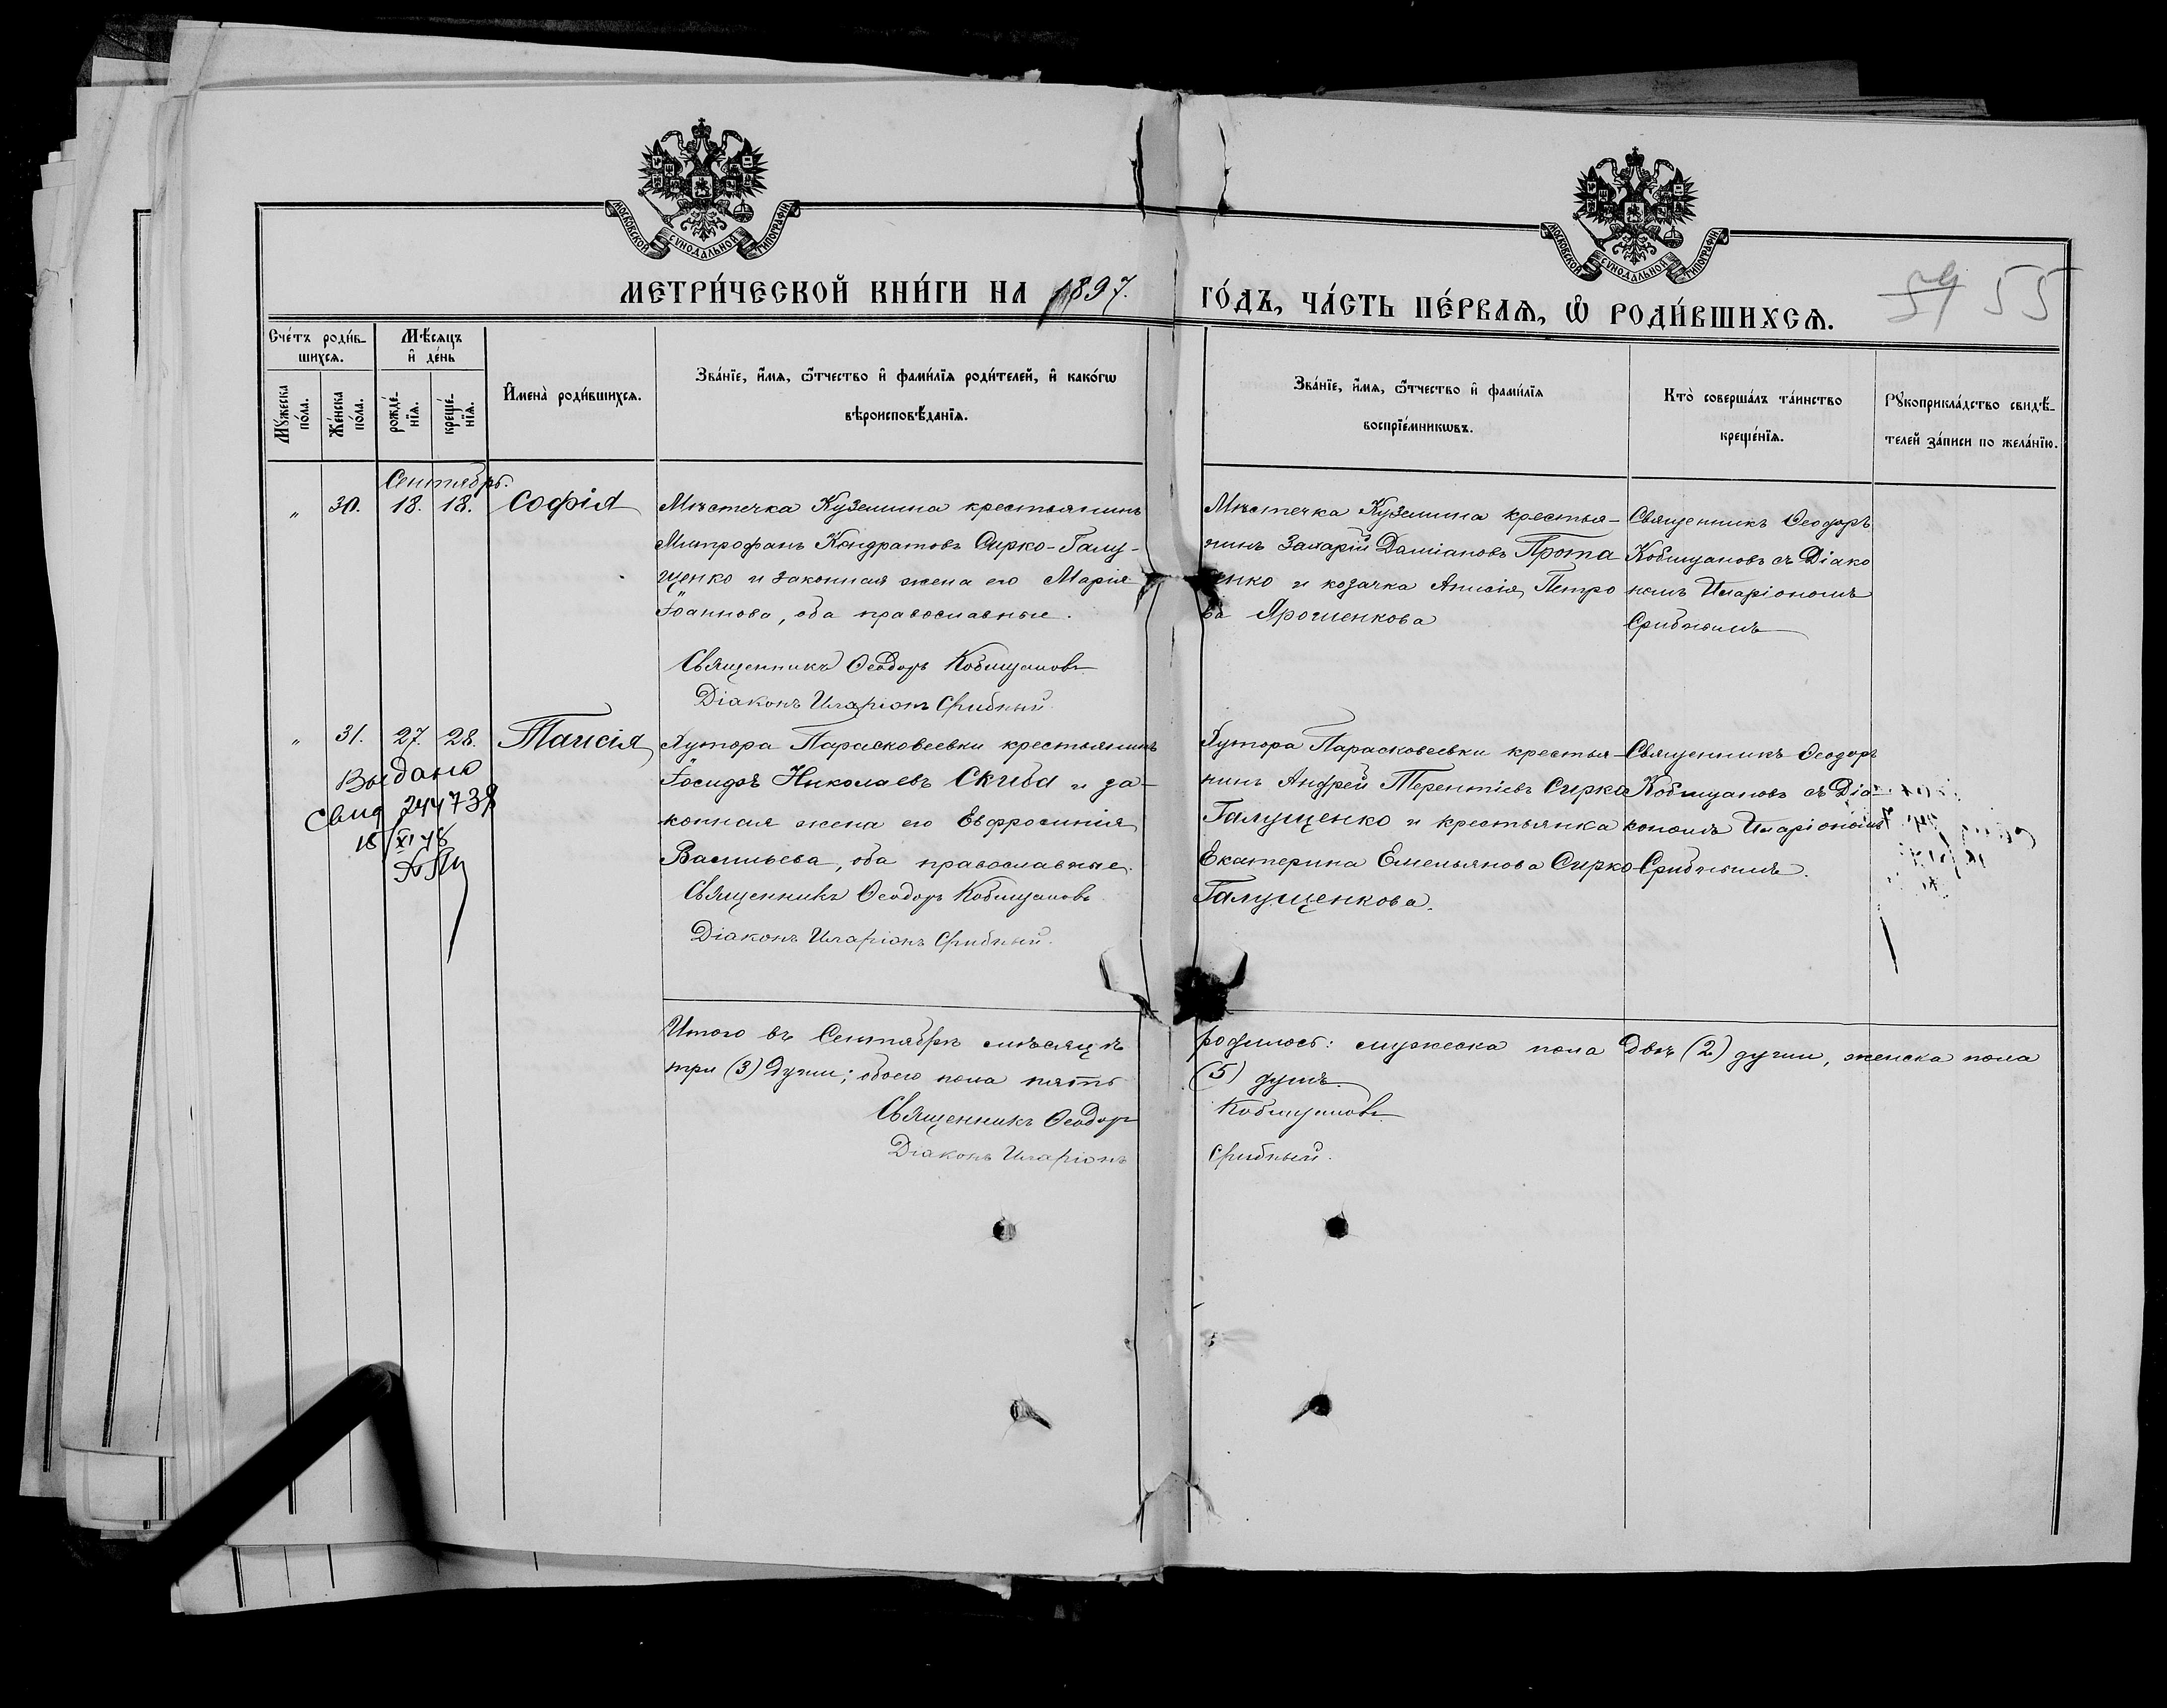 МОСКОВСКОЙ СУНОДАЛЬНОЙ ТИПОГРАФІИ
МОСКОВСКОЙ СУНОДАЛЬНОЙ ТИПОГРАФІИ
МЕТРИ́ЧЕСКОЙ КНИ́ГИ НА 1897.
ГО́ДЪ, ЧА́СТЬ ПЕ́РВАѦ, Ѿ РОДИ́ВШИХСѦ.
54 55
Сче́тъ роди́в-
шихсѧ.
Мѣ́сѧцъ
и҆ де́нь
Мꙋ́жеска
по́ла.
Же́нска
по́ла.
рожде́-
нїѧ.
креще́-
нїѧ.
И҆мена̀ роди́вшихсѧ.
Зва́нїе, и҆́мѧ, ѻ҆́тчество и҆ фами́лїѧ роди́телей, и҆ како́гѡ
вѣроисповѣ́данїѧ.
Зва́нїе, и҆́мѧ, ѻ҆́тчество и҆ фами́лїѧ
воспрїе́мникѡвъ.
Кто̀ соверша́лъ та́инство
креще́нїѧ.
Рꙋкоприкла́дство свидѣ́-
телей за́писи по жела́нїю.
Сентябрь.
„ 30. 18. 18. Софія
Мѣстечка Куземина крестьянинъ
Митрофанъ Кондратовъ Сирко-Галу-
щенко и законная жена его Марія
Іоаннова, оба православные.
Священникъ Ѳеодоръ Кобищановъ
Діаконъ Иларіонъ Срибный.
Мѣстечка Куземина крестья-
нинъ Захарій Даміановъ Прота
енко и козачка Анисія Петро
ва Ярошенкова
Священникъ Ѳеодоръ
Кобищановъ съ Діако
номъ Иларіономъ
Срибнымъ
„ 31. 27. 28. Таисія
Выдано
свид 244738
18/XI 48
Хутора Парасковеевки крестьянинъ
Іосифъ Николаевъ Скиба и за-
конная жена его Евфросинія
Васильева, оба православные.
Священникъ Ѳеодоръ Кобищановъ
Діаконъ Иларіонъ Срибный.
Хутора Парасковеевки крестья-
нинъ Андрей Терентіевъ Сирко
Галущенко и крестьянка
Екатерина Емельянова Сирко-
Галущенкова.
Священникъ Ѳеодоръ
Кобищановъ съ Діа-
кономъ Иларіономъ
Срибнымъ.
Итого въ Сентябрѣ мѣсяцѣ родилось: мужеска пола двѣ (2) души, женска пола
три (3) души; обоего пола пять (5) душъ.
Священникъ Ѳеодоръ Кобищановъ
Діаконъ Иларіонъ Срибный.